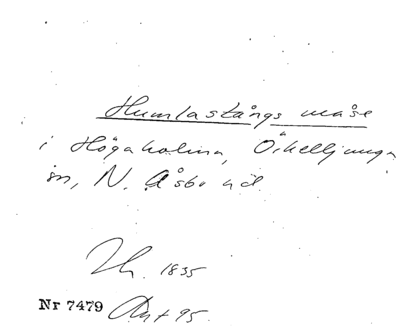 Humlastångs måse
i Högaholma, Örkelljunga
sn, N. Åsbo hd.
1835
Nr 7479